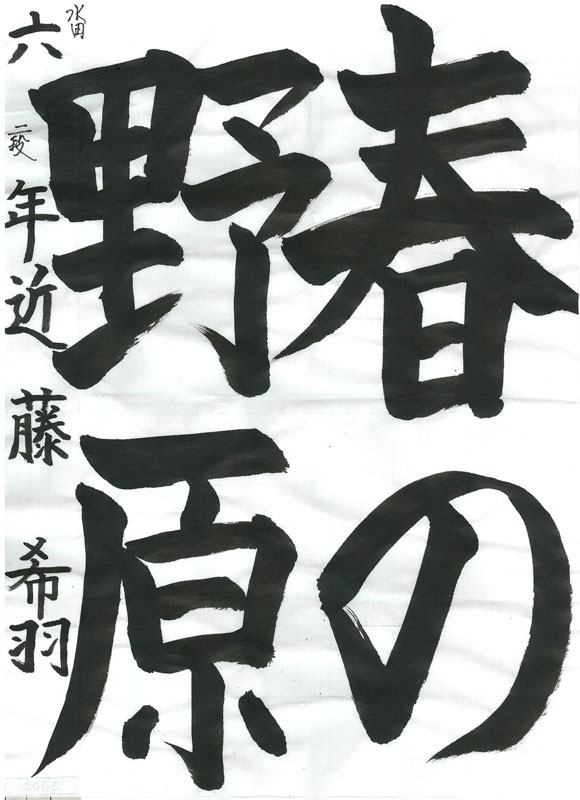 春の
野原
六年 近藤 希羽
水田
二段